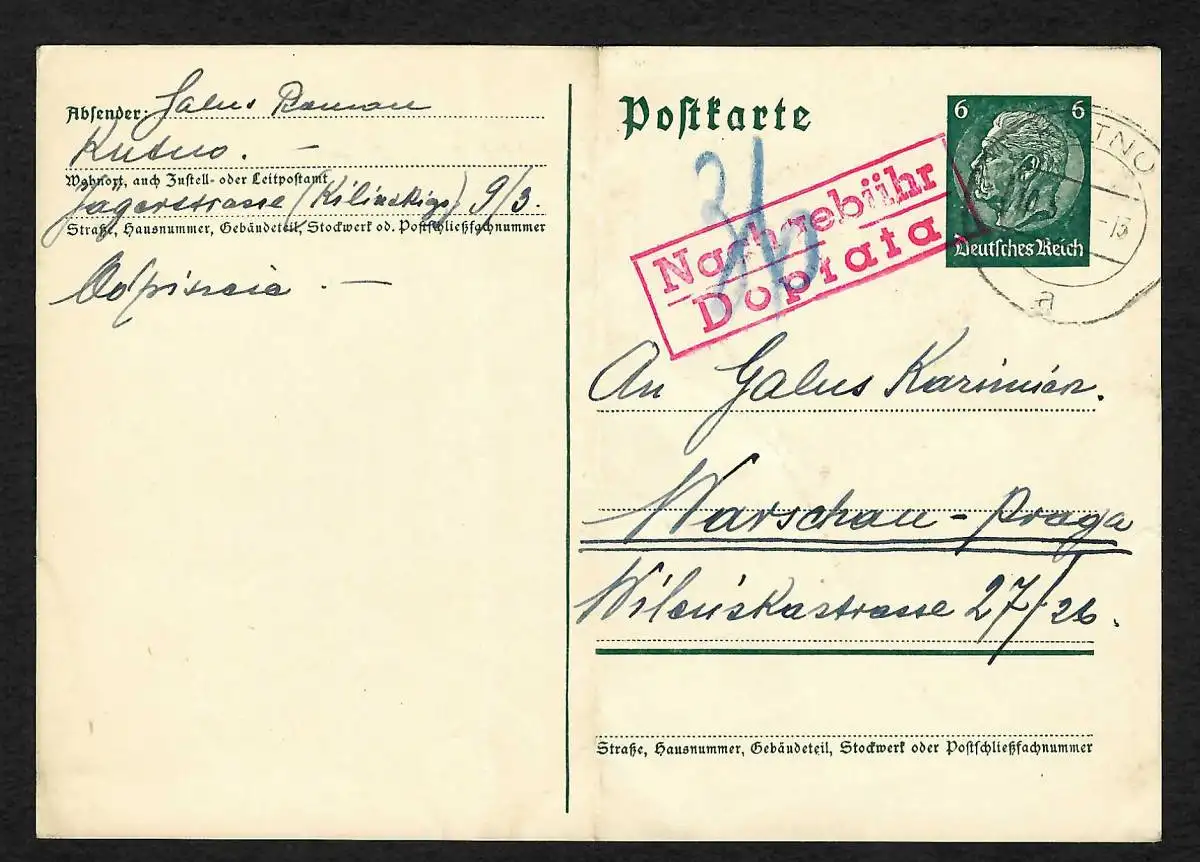 Absender: Galus Roman
Kutno. —
Wohnort, auch Zustell- oder Leitpostamt
Jägerstrasse (Kilińskiego) 9/3.
Straße, Hausnummer, Gebäudeteil, Stockwerk od. Postschließfachnummer
Postkarte
6 6
Deutsches Reich
Nachgebühr
Dopłata
-13
a
An Galus Kazimierz.
Warschau - Praga
Wileńskastrasse 27/26.
Straße, Hausnummer, Gebäudeteil, Stockwerk oder Postschließfachnummer